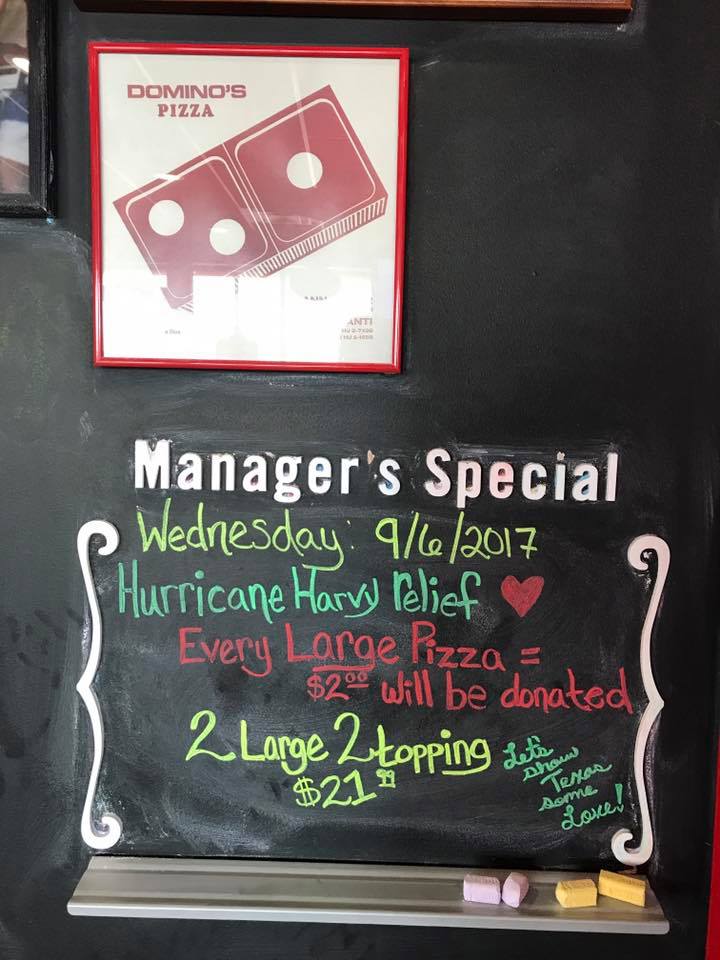 DOMINO'S
PIZZA
ANTI
Manager's Special
Wednesday: 9/6/2017
Hurricane Harvy relief
Every Large Pizza =
$2.00 will be donated
2 Large 2 topping
$21.99
Let's
show
Texas
some
Love!